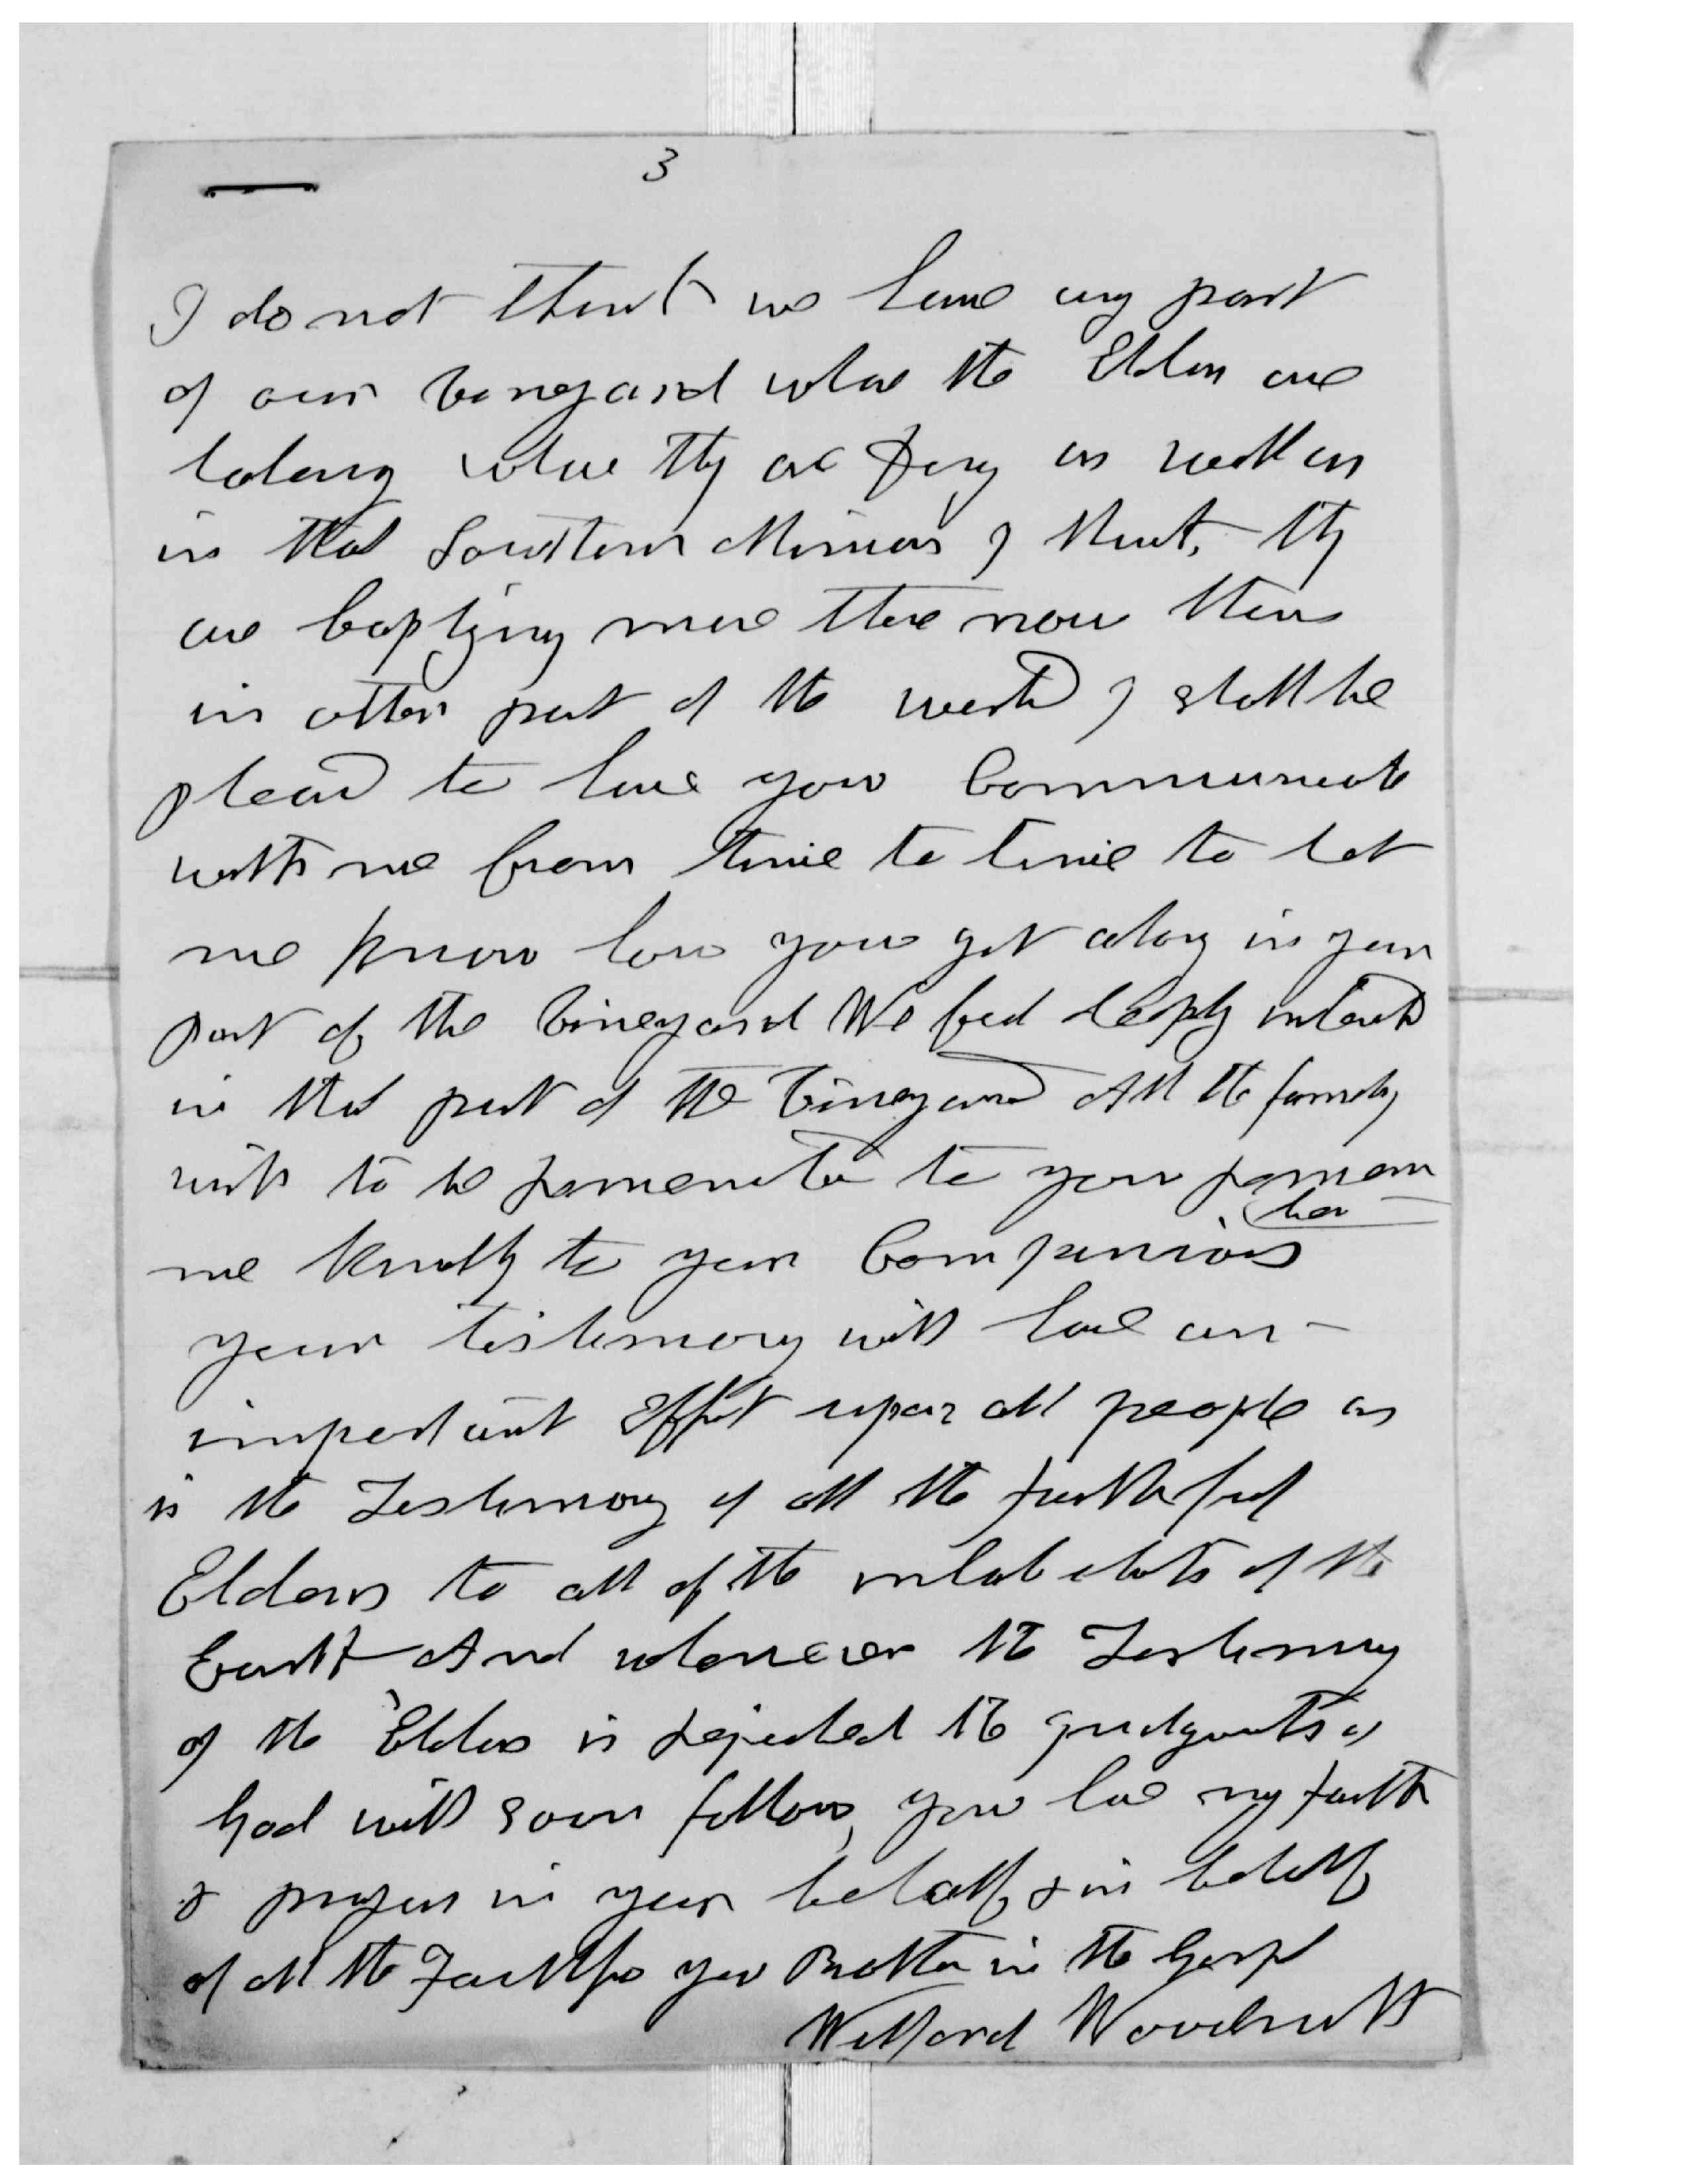 3
I do not think we have any part
of our vineyard whare the Elders are
labang whare they are doing as well as
in that Southern Mission I think they
are baptizing more there now then
in other part of the world I shall be
pleasd to have you Communicate
with me from time to time to let
me know how you get along in your
part of the vineyard We feel deeply interested
in that part of the vineyard All the family
wish to be remembered to you remem
ber
me kindly to your Companions
your testimony will have an
important Effect upon all people as
is the Testimony of all the faithful
Elders to all of the inhabitants of the
Earth And whenever the Testimony
of the Elders is rejected the judgments of
God will soon follow, you have my faith
& prayers in your behalf & in behalf
of all the Faithful your Brother in the Gospel
Wilford Woodruff